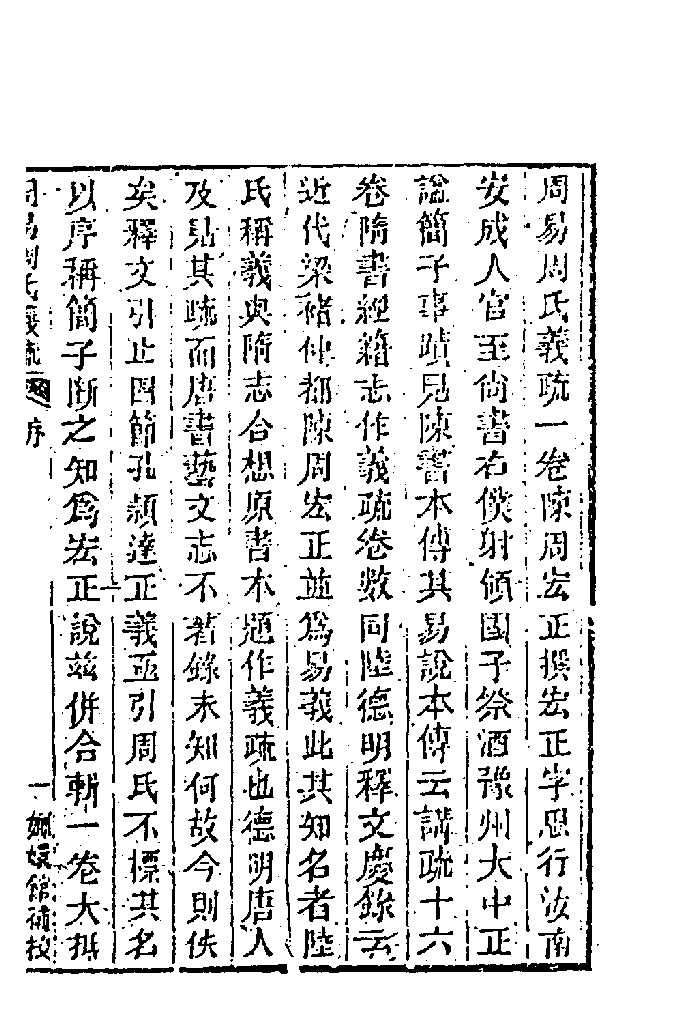 周易周氏義疏一卷陳周宏正撰宏正字思行汝南
安成人官至尚書右僕射領國子祭酒豫州大中正
諡簡子事蹟見陳書本傳其易說本傳云講疏十六
卷隋書經籍志作義疏卷數同陸德明釋文敘錄云
近代梁褚仲都陳周宏正並爲易義此其知名者陸
氏稱義與隋志合想原書本題作義疏也德明唐人
及見其疏而唐書藝文志不著錄未知何故今則佚
矣釋文引止四節孔穎達正義亟引周氏不標其名
以序稱簡子斷之知爲宏正說茲併合輯一卷大抵
周易周氏義疏 序 一 嫏嬛館補校